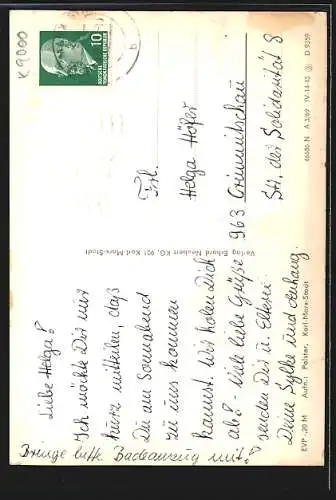 K9000
10
Liebe Helga!
Ich möchte Dir nur
kurz mitteilen, daß
Du am Sonnabend
zu uns kommen
kannst. Wir holen Dich
ab! - Viele liebe Grüße
senden Dir u. Eltern
Deine Sylke und Anhang.
Bringe bitte Badeanzug mit!
Verlag Erhard Neubert KG, 901 Karl-Marx-Stadt
Frl.
Helga Höfer
963 Crimmitschau
Str. der Solidarität 8
EVP -,20 M Aufn.: Polster, Karl-Marx-Stadt
46686 N A 3/69 IV-14-45 D 9259